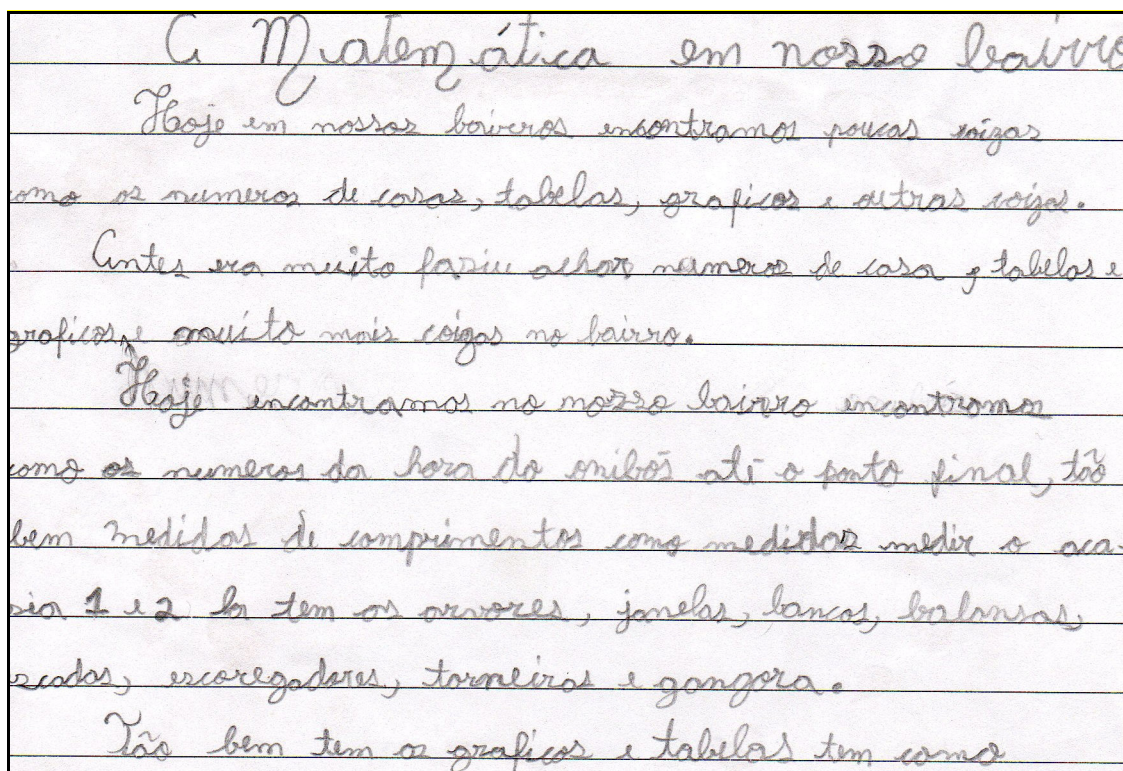 A Matemática em nosso bairro
Hoje em nossos bairros encontramos poucas coizas
como os numeros de casas, tabelas, graficos e outras coizas.
Antes era muito faziu achar numeros de casa, tabelas e
graficos, e muito mais coizas no bairro.
Hoje encontramos no nosso bairro encontramos
como os numeros da hora do onibos até o ponto final, tão
bem medidas de comprimentos como medidas medir o aca-
sia 1 e 2 la tem as arvores, janelas, bancos, balansas,
scadas, escoregadores, torneiras e gangora.
Tão bem tem os graficos e tabelas tem como